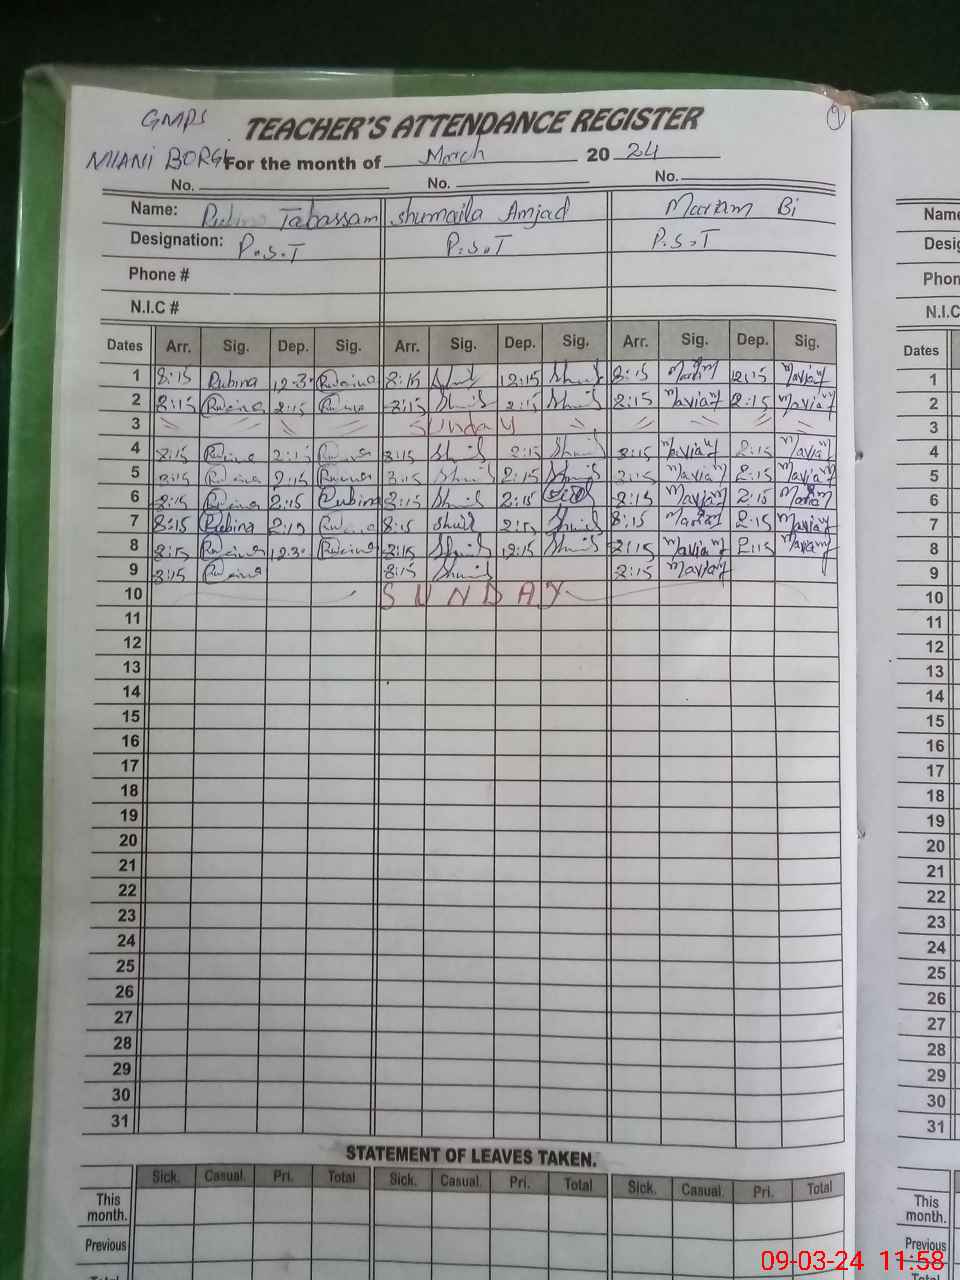 GMPS TEACHER'S ATTENDANCE REGISTER 9
MIANI BORGI For the month of March 20 24
No. No. No.
Name: Rubina Tabassam Shumaila Amjad Mariam Bi
Designation: P.S.T P.S.T P.S.T
Phone #
N.I.C #
Dates Arr. Sig. Dep. Sig. Arr. Sig. Dep. Sig. Arr. Sig. Dep. Sig.
1 8:15 Rubina 12:3 Rubina 8:15 Shumi 12:15 Shumi 8:15 Mariam 12:15 Mariam
2 8:15 Rubina 2:15 Rubina 8:15 Shumi 2:15 Shumi 8:15 Mariam 2:15 Mariam
3 Sunday
4 8:15 Rubina 2:15 Rubina 8:15 Shumi 2:15 Shumi 8:15 Mariam 2:15 Mariam
5 8:15 Rubina 2:15 Rubina 8:15 Shumi 2:15 Shumi 8:15 Mariam 2:15 Mariam
6 8:15 Rubina 2:15 Rubina 8:15 Shumi 2:15 8:15 Mariam 2:15 Mariam
7 8:15 Rubina 2:15 Rubina 8:15 Shumi 2:15 Shumi 8:15 Mariam 2:15 Mariam
8 8:15 Rubina 12:3 Rubina 8:15 Shumi 12:15 Shumi 8:15 Mariam 2:15 Mariam
9 8:15 Rubina 8:15 Shumi 8:15 Mariam
10 SUNDAY
11
12
13
14
15
16
17
18
19
20
21
22
23
24
25
26
27
28
29
30
31
STATEMENT OF LEAVES TAKEN.
Sick. Casual. Pri. Total Sick. Casual. Pri. Total Sick. Casual. Pri. Total
This
month.
Previous
Total
Name
Phon
N.I.C
Dates
1
2
3
4
5
6
7
8
9
10
11
12
13
14
15
16
17
18
19
20
21
22
23
24
25
26
27
28
29
30
31
This
month.
Previous
09-03-24 11:58